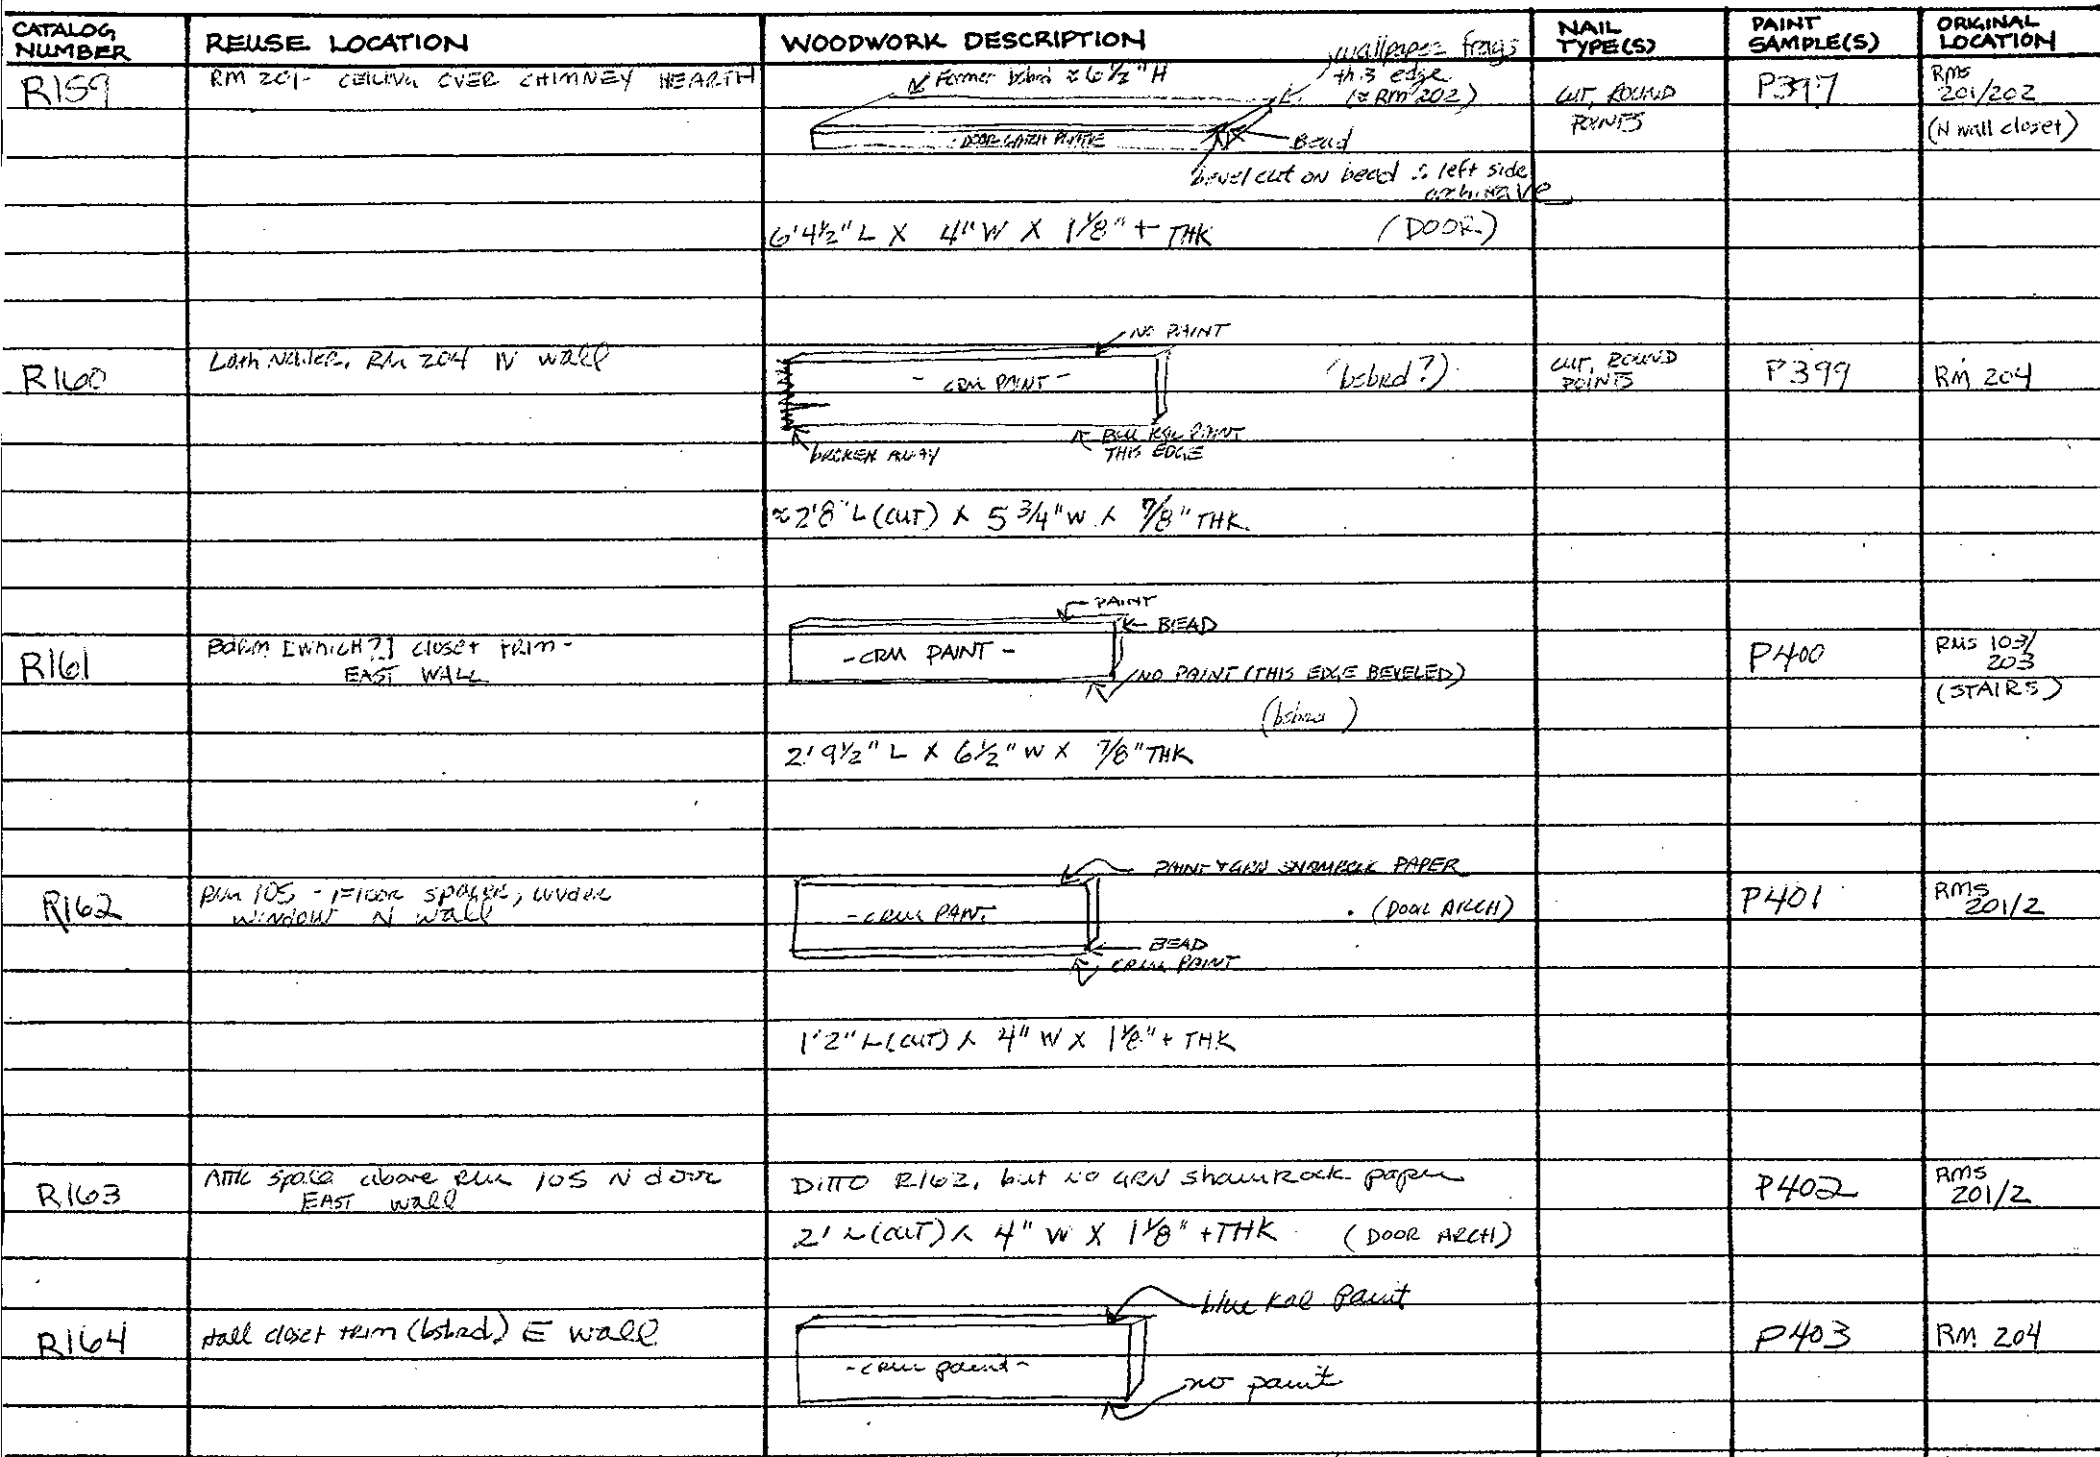 CATALOG NUMBER
REUSE LOCATION
WOODWORK DESCRIPTION
NAIL TYPE(S)
PAINT SAMPLE(S)
ORIGINAL LOCATION
R159
RM 201- CEILING OVER CHIMNEY HEARTH
Former bsbrd ≈ 6 1/2" H
wallpaper frags
this edge
(≈ RM 202)
DOOR LATCH
Bead
bevel cut on bead ∴ left side
architrave
6' 4 1/2" L X 4" W X 1 1/8" + THK
(DOOR)
CUT, ROUND
POINTS
P397
RMS
201/202
(N wall closet)
R160
Lath Nailer, RM 204 N wall
NO PAINT
- CRM PAINT -
(bsbrd?)
BLU KAL PAINT
THIS EDGE
BROKEN AWAY
≈ 2'8" L (CUT) X 5 3/4" W X 7/8" THK.
CUT, ROUND
POINTS
P399
RM 204
R161
[WHICH?] closet trim -
EAST WALL
PAINT
BEAD
- CRM PAINT -
NO PAINT (THIS EDGE BEVELED)
(bsbrd)
2' 9 1/2" L X 6 1/2" W X 7/8" THK
P400
RMS 103/
203
(STAIRS)
R162
RM 105 - Floor spacer, under
WINDOW N wall
PAINT & GRN SHAMROCK PAPER
- CRM PAINT
(DOOR ARCH)
BEAD
CRM PAINT
1'2" L (CUT) X 4" W X 1 1/8" + THK
P401
RMS
201/2
R163
Attic space above RM 105 N door
EAST wall
DITTO R162, but no GRN shamrock paper
2' L (CUT) X 4" W X 1 1/8" + THK
(DOOR ARCH)
P402
RMS
201/2
R164
Hall closet trim (bsbrd) E wall
blue kal Paint
- crm paint -
no paint
P403
RM 204